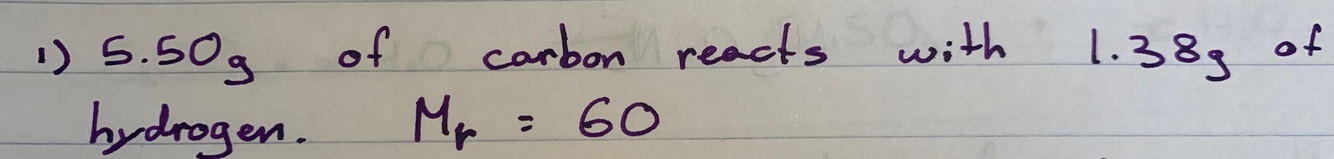 1) 5.50g of carbon reacts with 1.38g of
hydrogen. Mr = 60